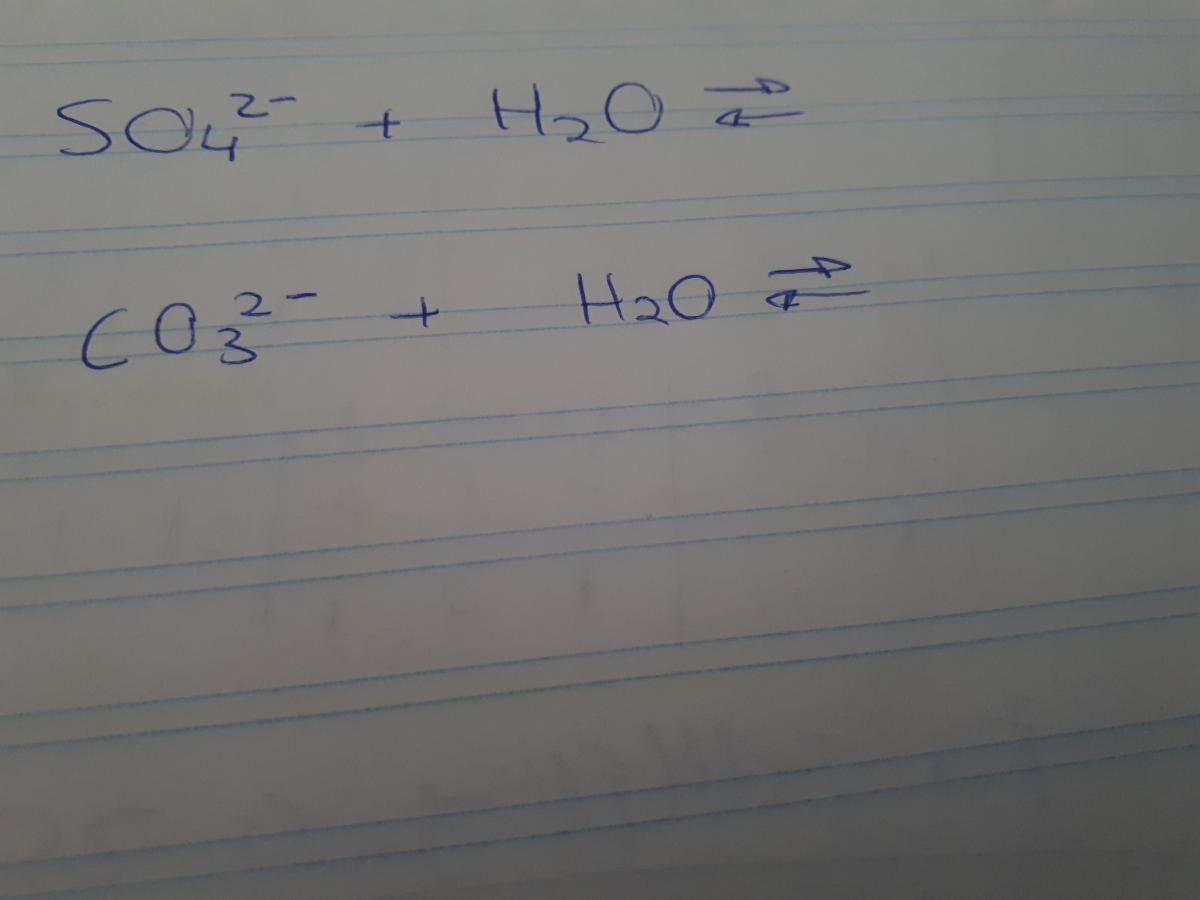 SO₄²⁻ + H₂O ⇌
CO₃²⁻ + H₂O ⇌